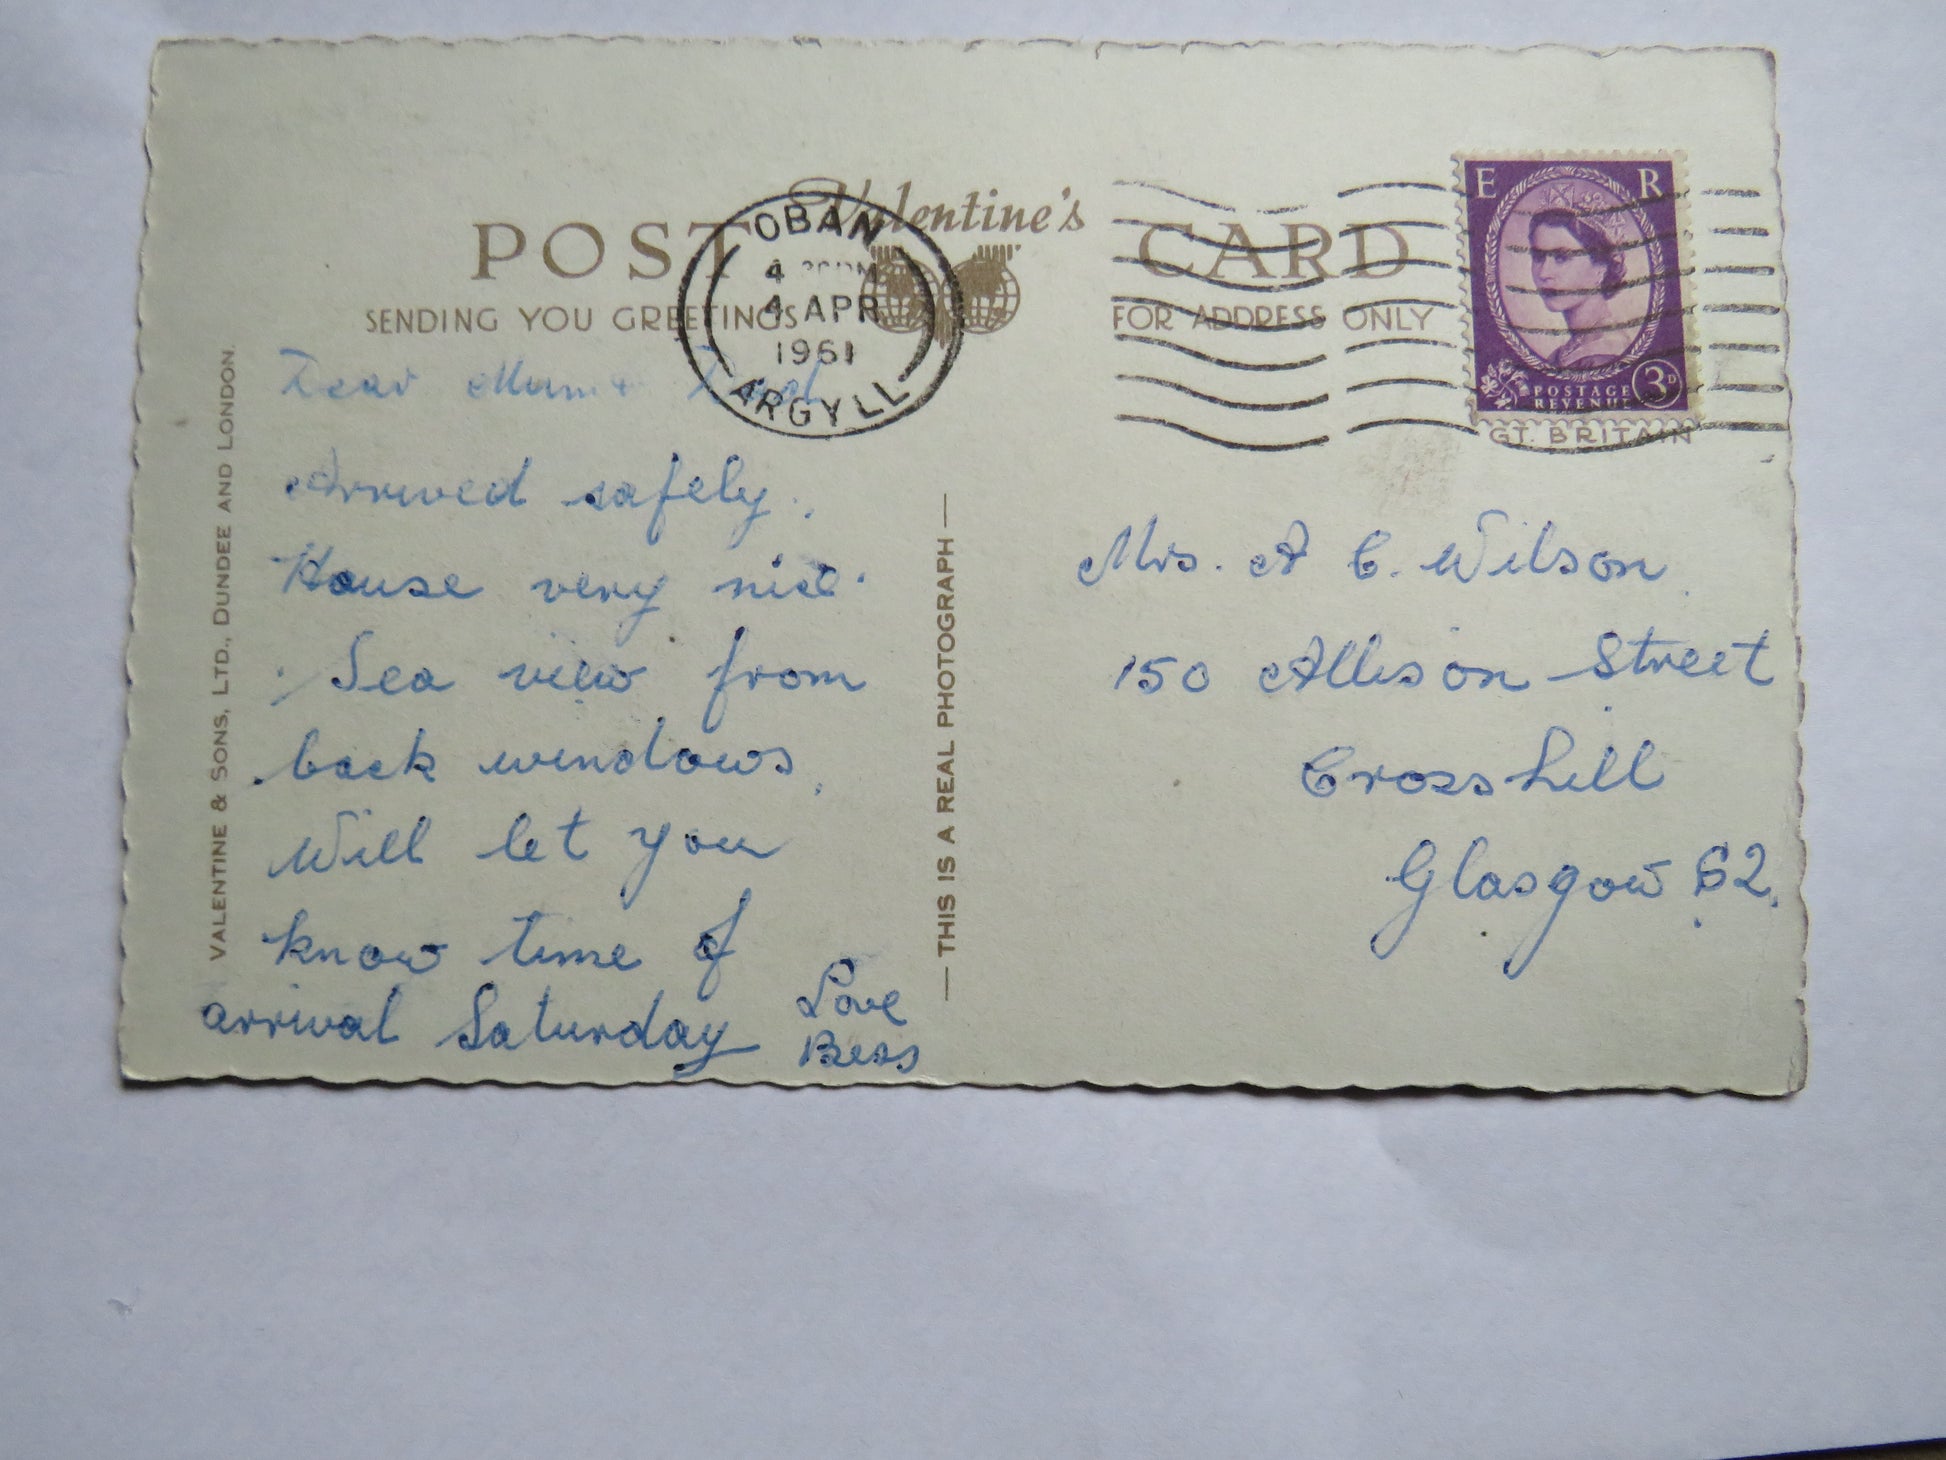 Valentine's
POST CARD
SENDING YOU GREETINGS
FOR ADDRESS ONLY
OBAN
4 PM
4 APR
1961
ARGYLL
E R
POSTAGE
REVENUE
3D
GT. BRITAIN
VALENTINE & SONS, LTD., DUNDEE AND LONDON.
Dear Mum &
Arrived safely.
House very nice.
Sea view from
back windows.
Will let you
know time of
arrival Saturday
Love
Bess
— THIS IS A REAL PHOTOGRAPH —
Mrs. A C. Wilson
150 Allison Street
Crosshill
Glasgow S2.